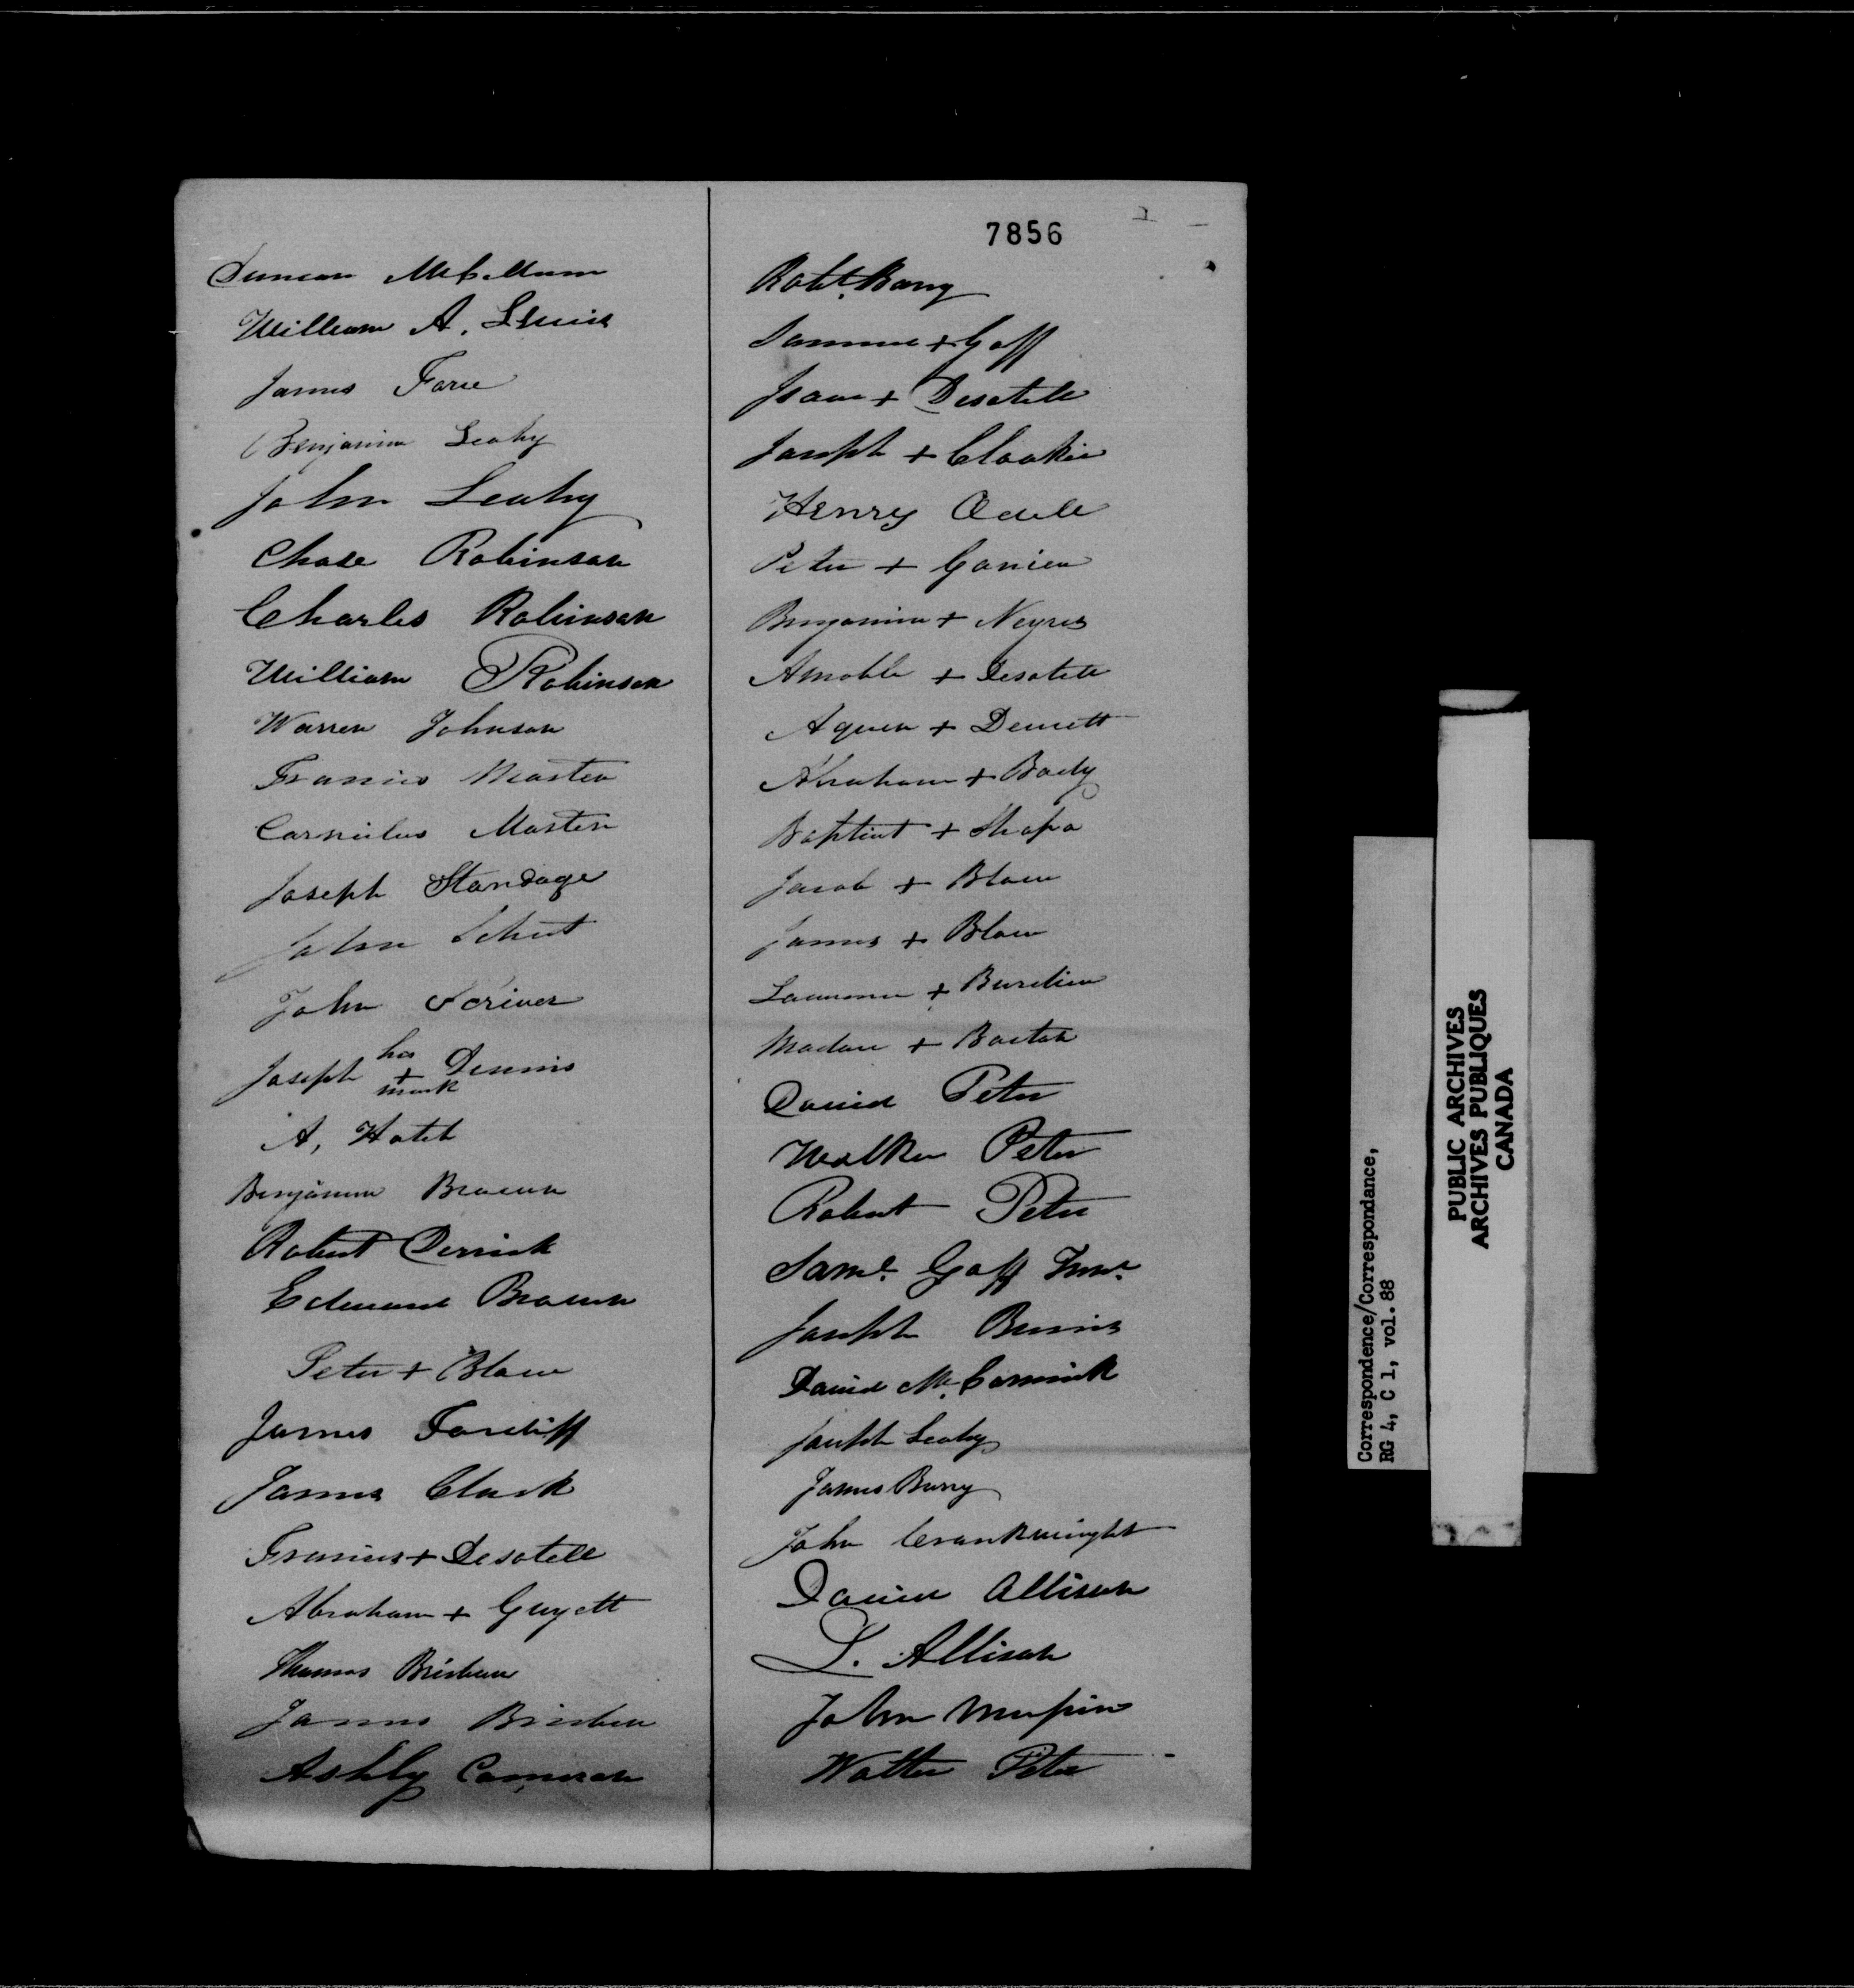 7856
Duncan McCallum
William A. Lewis
James Farie
Benjamin Leahy
John Leahy
Chase Robinson
Charles Robinson
William Robinson
Warren Johnson
Francis Masten
Cornielus Masten
Joseph Standage
John Schut
John Scriver
Joseph his + mark Dennis
A, Hatch
Benjamin Brown
Robert Derrick
Edward Brown
Peter + Blow
James Fardiff
James Clark
Francis + Desotell
Abraham + Guyett
Thomas Brisben
James Brisben
Ashly Cameron
Robt. Barry
Samuel + Goff
Isaac + Desotell
Joseph + Clookie
Henry Odell
Peter + Ganien
Benjamin + Negres
Amable + Desotell
+ Demett
Abraham + Bady
Baptist + Shapa
Jacob + Blow
James + Blow
+ Burdien
+
David Peter
Walker Peter
Robert Peter
Saml. Goff Junr.
Joseph Burris
David Mc.Cormick
Joseph Leahy
James Barry
John Crankwright
David Allison
L. Allison
John
Walter Peter
Correspondence/Correspondance,
RG 4, C 1, vol. 88
PUBLIC ARCHIVES
ARCHIVES PUBLIQUES
CANADA